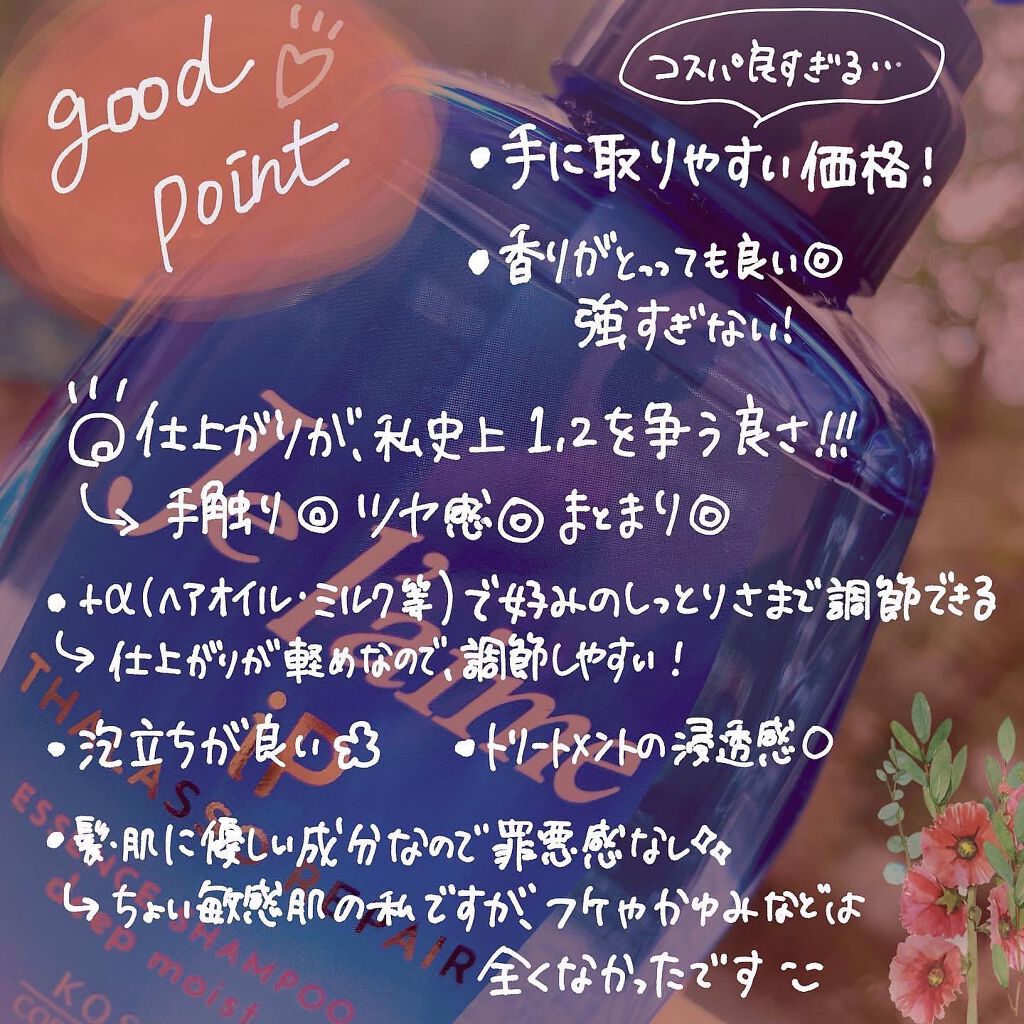 good
point
コスパ良すぎる…
・手に取りやすい価格！
・香りがとっっても良い◎
強すぎない！
仕上がりが、私史上 1,2を争う良さ!!!
↳ 手触り◎ ツヤ感◎ まとまり◎
・+α(ヘアオイル・ミルク等)で好みのしっとりさまで調節できる
↳ 仕上がりが軽めなので、調節しやすい！
・泡立ちが良い
・トリートメントの浸透感○
・髪・肌に優しい成分なので罪悪感なし
↳ ちょい敏感肌の私ですが、フケやかゆみなどは
全くなかったです
Je l'aime
iP
THALASSO REPAIR
ESSENCE SHAMPOO
deep moist